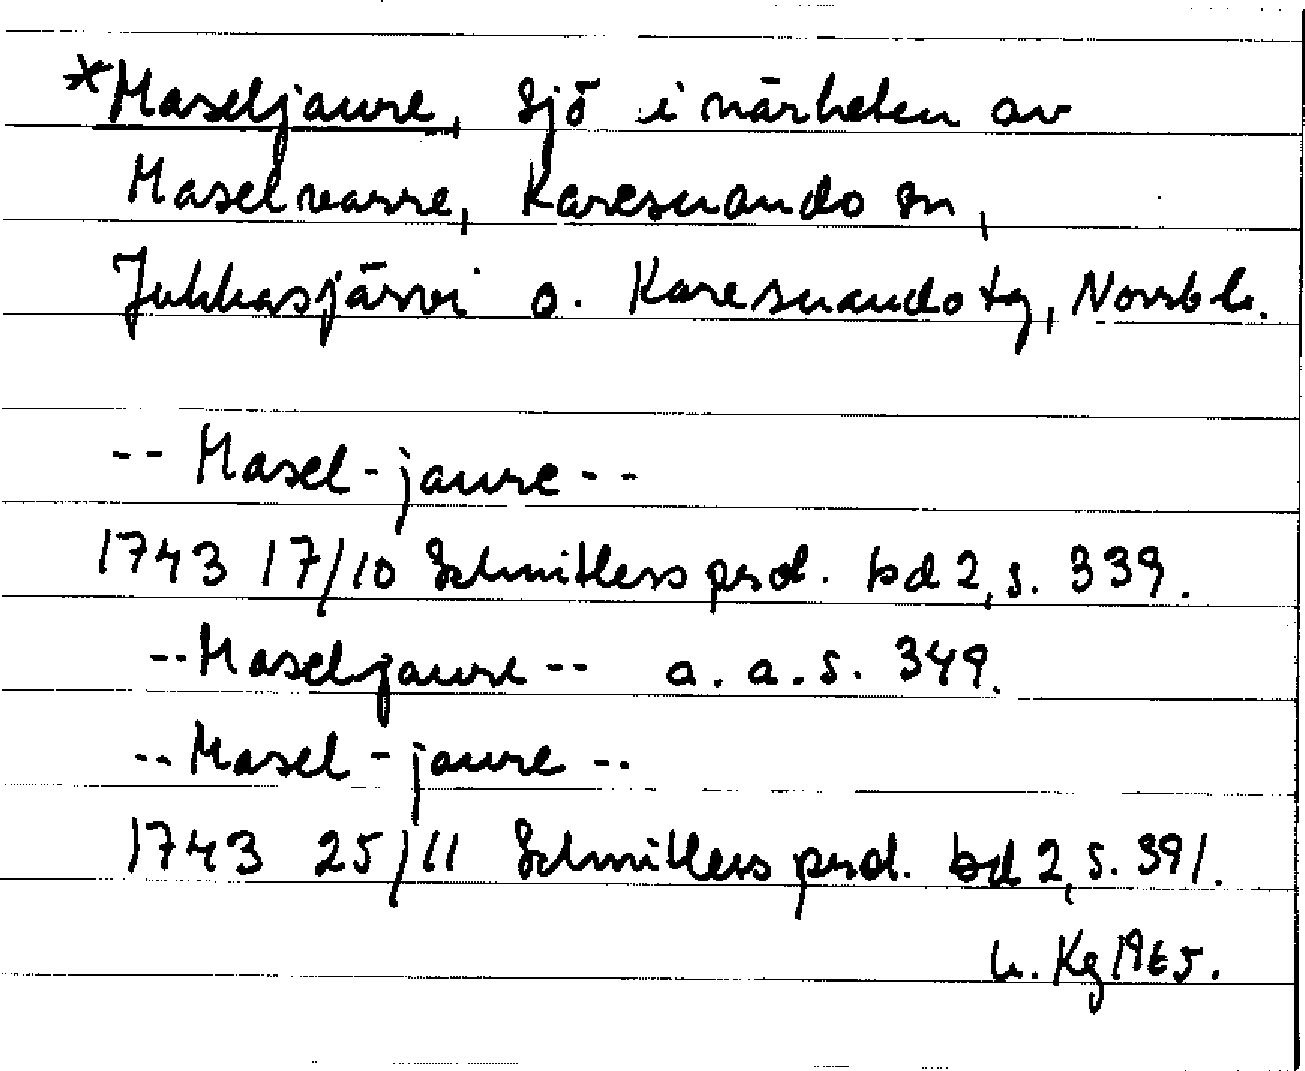 *Maseljaure, sjö i närheten av
Maselvarre, Karesuando sn,
Jukkasjärvi o. Karesuando tg, Norrb l.
-- Masel-jaure --
1743 17/10 Schnitlers prot. bd 2, s. 339.
-- Maseljaure -- a. a. s. 349.
-- Masel-jaure --
1743 25/11 Schnitlers prot. bd 2, s. 391.
Kg 1965.